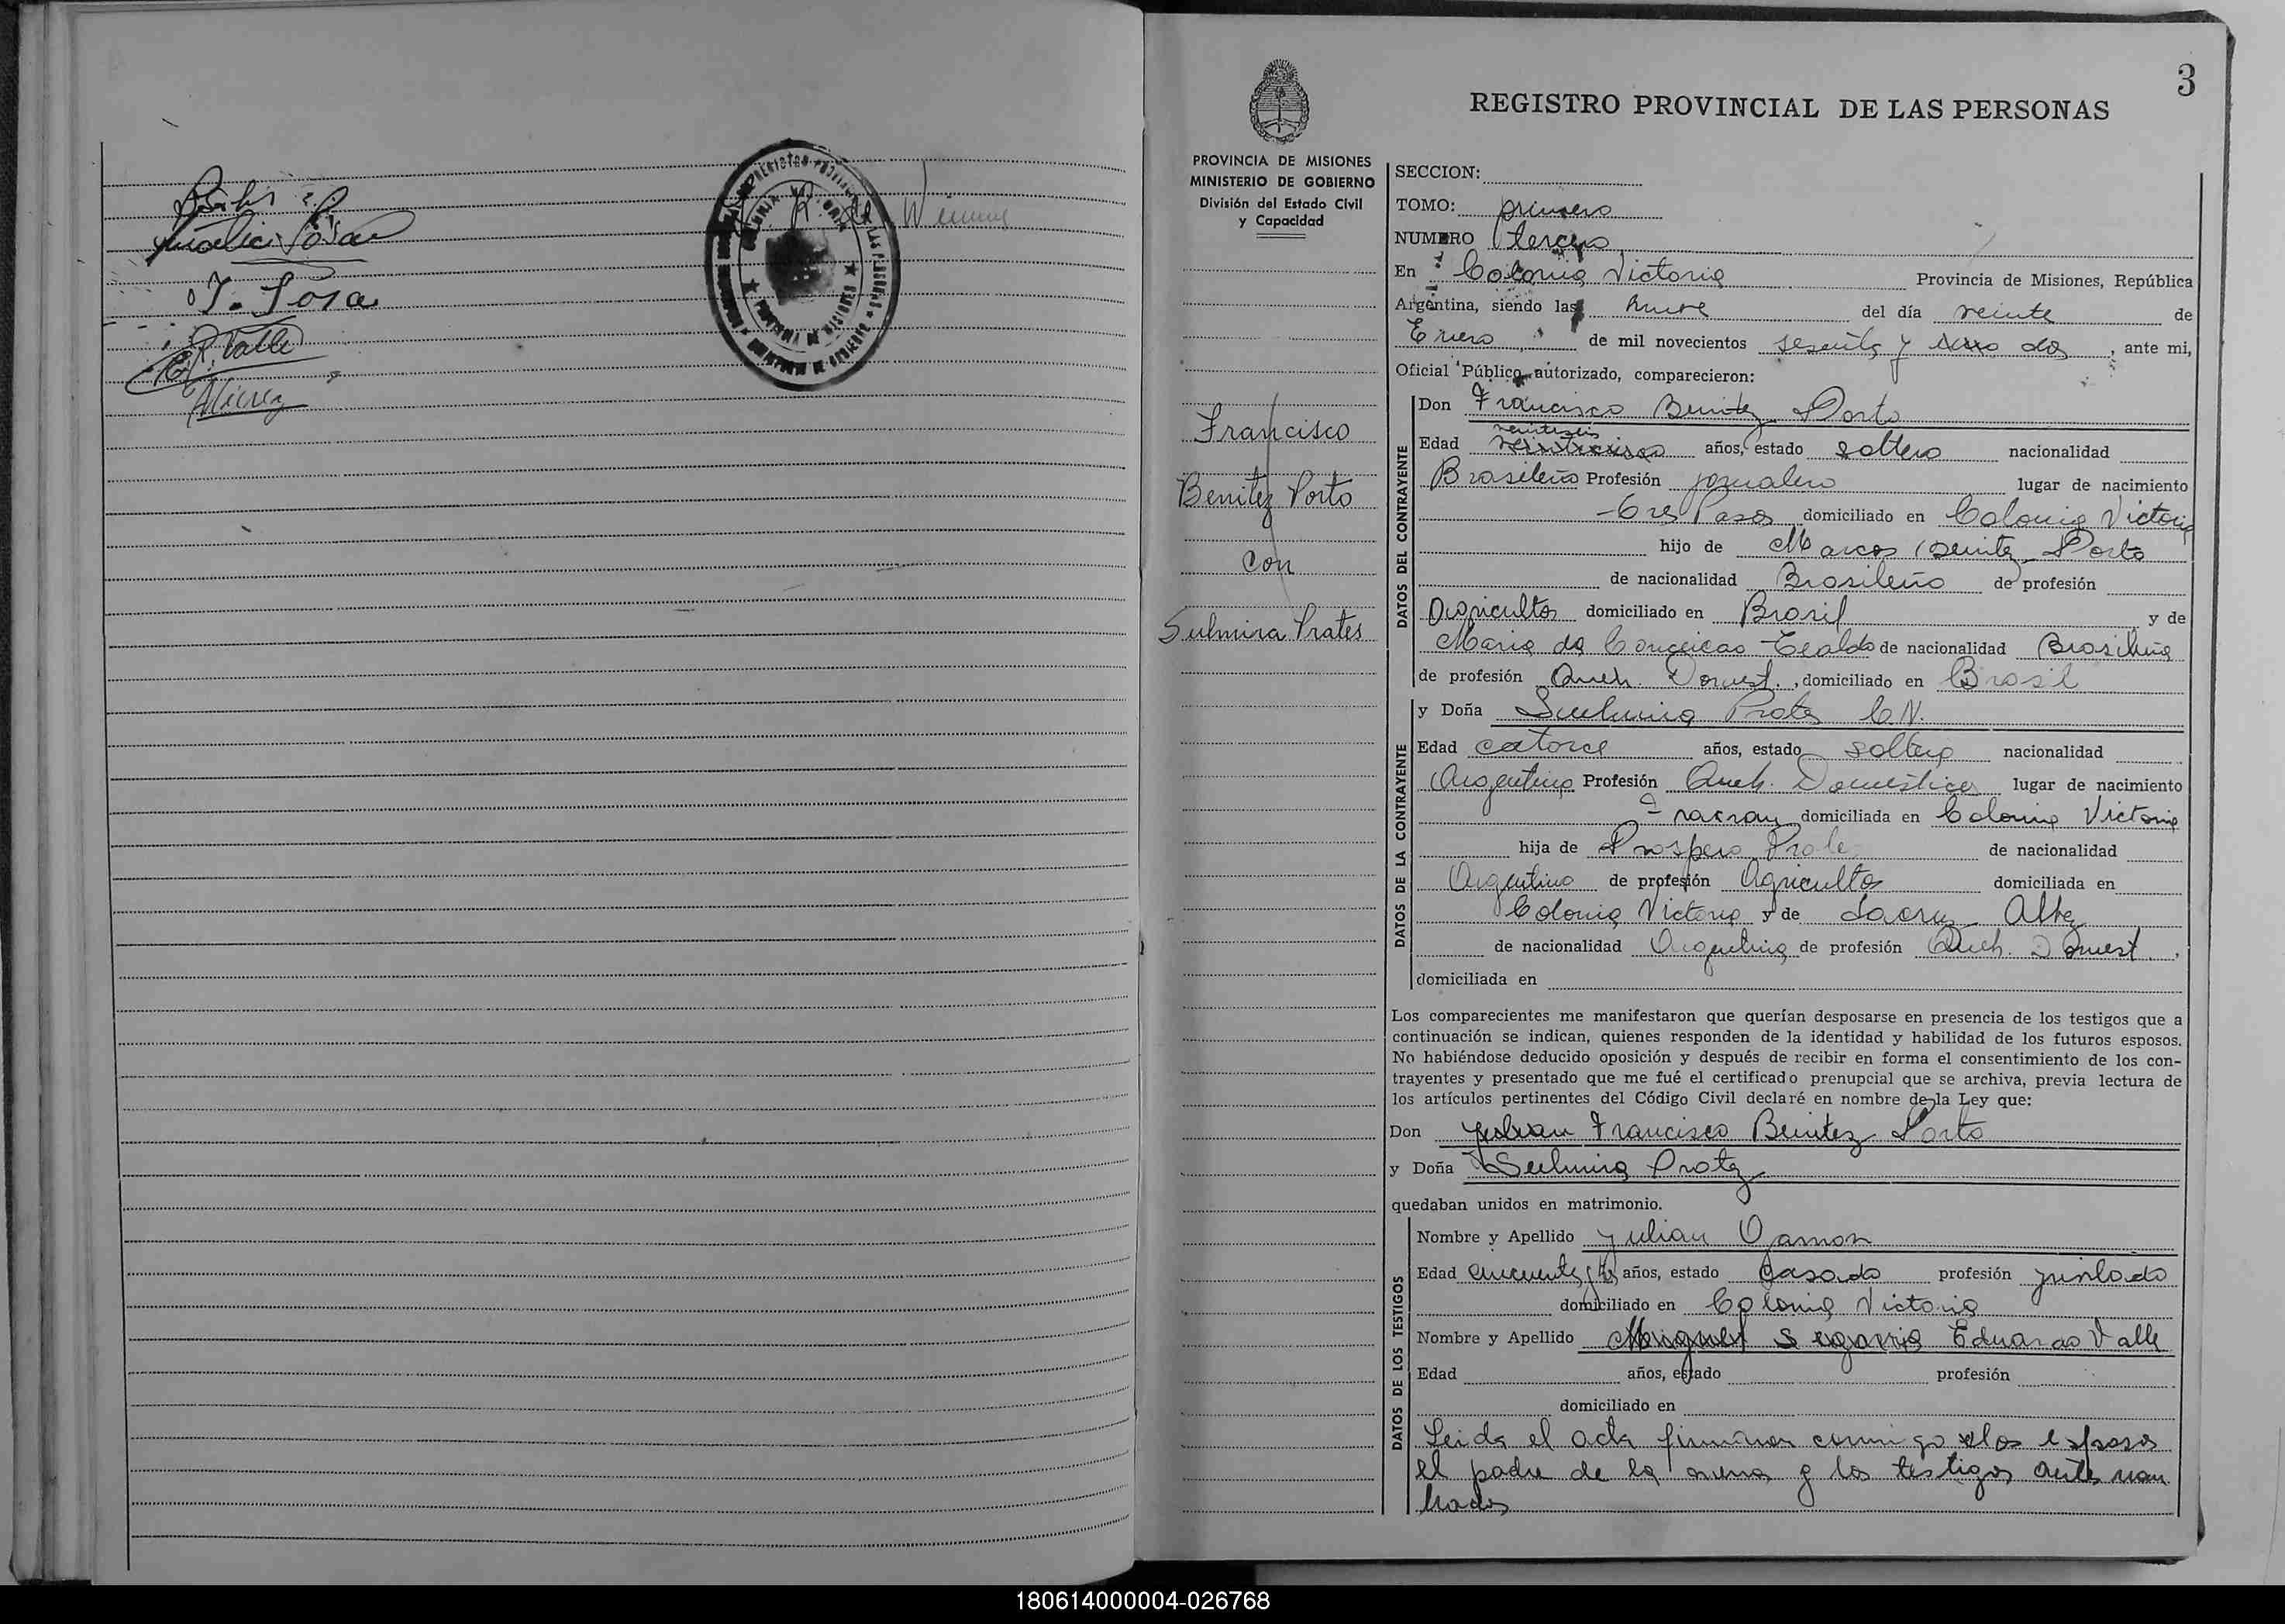 T. Sosa
E. R. Valle
REGISTRO PROVINCIAL DE LAS PERSONAS
3
PROVINCIA DE MISIONES
MINISTERIO DE GOBIERNO
División del Estado Civil
y Capacidad
Francisco
Benitez Porto
con
Sulmira Prates
SECCION:
TOMO: primero
NUMERO tercero
En Colonia Victoria Provincia de Misiones, República
Argentina, siendo las nueve del día veinte de
Enero de mil novecientos sesenta y dos, ante mi,
Oficial Público autorizado, comparecieron:
DATOS DEL CONTRAYENTE
Don Francisco Benitez Porto
veintiseis
Edad años, estado soltero nacionalidad
Brasileño Profesión jornalero lugar de nacimiento
Tres Pasos domiciliado en Colonia Victoria
hijo de Marcos Benitez Porto
de nacionalidad Brasileño de profesión
Agricultor domiciliado en Brasil y de
Maria da Conceicao de nacionalidad Brasileña
de profesión Queh. Domest., domiciliado en Brasil
DATOS DE LA CONTRAYENTE
y Doña Sulmira Prates C.N.
Edad catorce años, estado soltera nacionalidad
Argentina Profesión Queh. Domesticos lugar de nacimiento
domiciliada en Colonia Victoria
hija de Prospero Prates de nacionalidad
Argentino de profesión Agricultor domiciliada en
Colonia Victoria y de
de nacionalidad Argentina de profesión Queh. Domest.,
domiciliada en
Los comparecientes me manifestaron que querían desposarse en presencia de los testigos que a
continuación se indican, quienes responden de la identidad y habilidad de los futuros esposos.
No habiéndose deducido oposición y después de recibir en forma el consentimiento de los con-
trayentes y presentado que me fué el certificado prenupcial que se archiva, previa lectura de
los artículos pertinentes del Código Civil declaré en nombre de la Ley que:
Don Francisco Benitez Porto
y Doña Sulmira Prates
quedaban unidos en matrimonio.
DATOS DE LOS TESTIGOS
Nombre y Apellido Julian
Edad cincuenta y años, estado Casado profesión jubilado
domiciliado en Colonia Victoria
Nombre y Apellido Eduardo Valle
Edad años, estado profesión
domiciliado en
Leida el acta firman conmigo los esposos
el padre de la y los testigos ante nom
brados
180614000004-026768